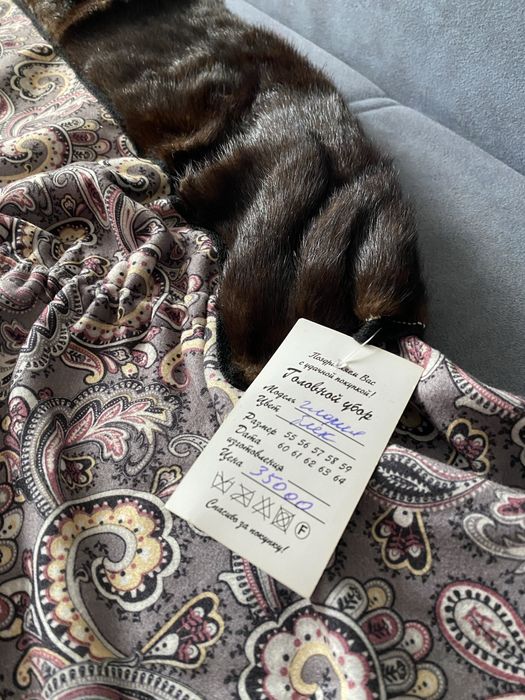 Поздравляем Вас
с удачной покупкой!
Головной убор
Модель
Цвет
Размер 55 56 57 58 59
Дата 60 61 62 63 64
изготовления
Цена 35000
F
Спасибо за покупку!